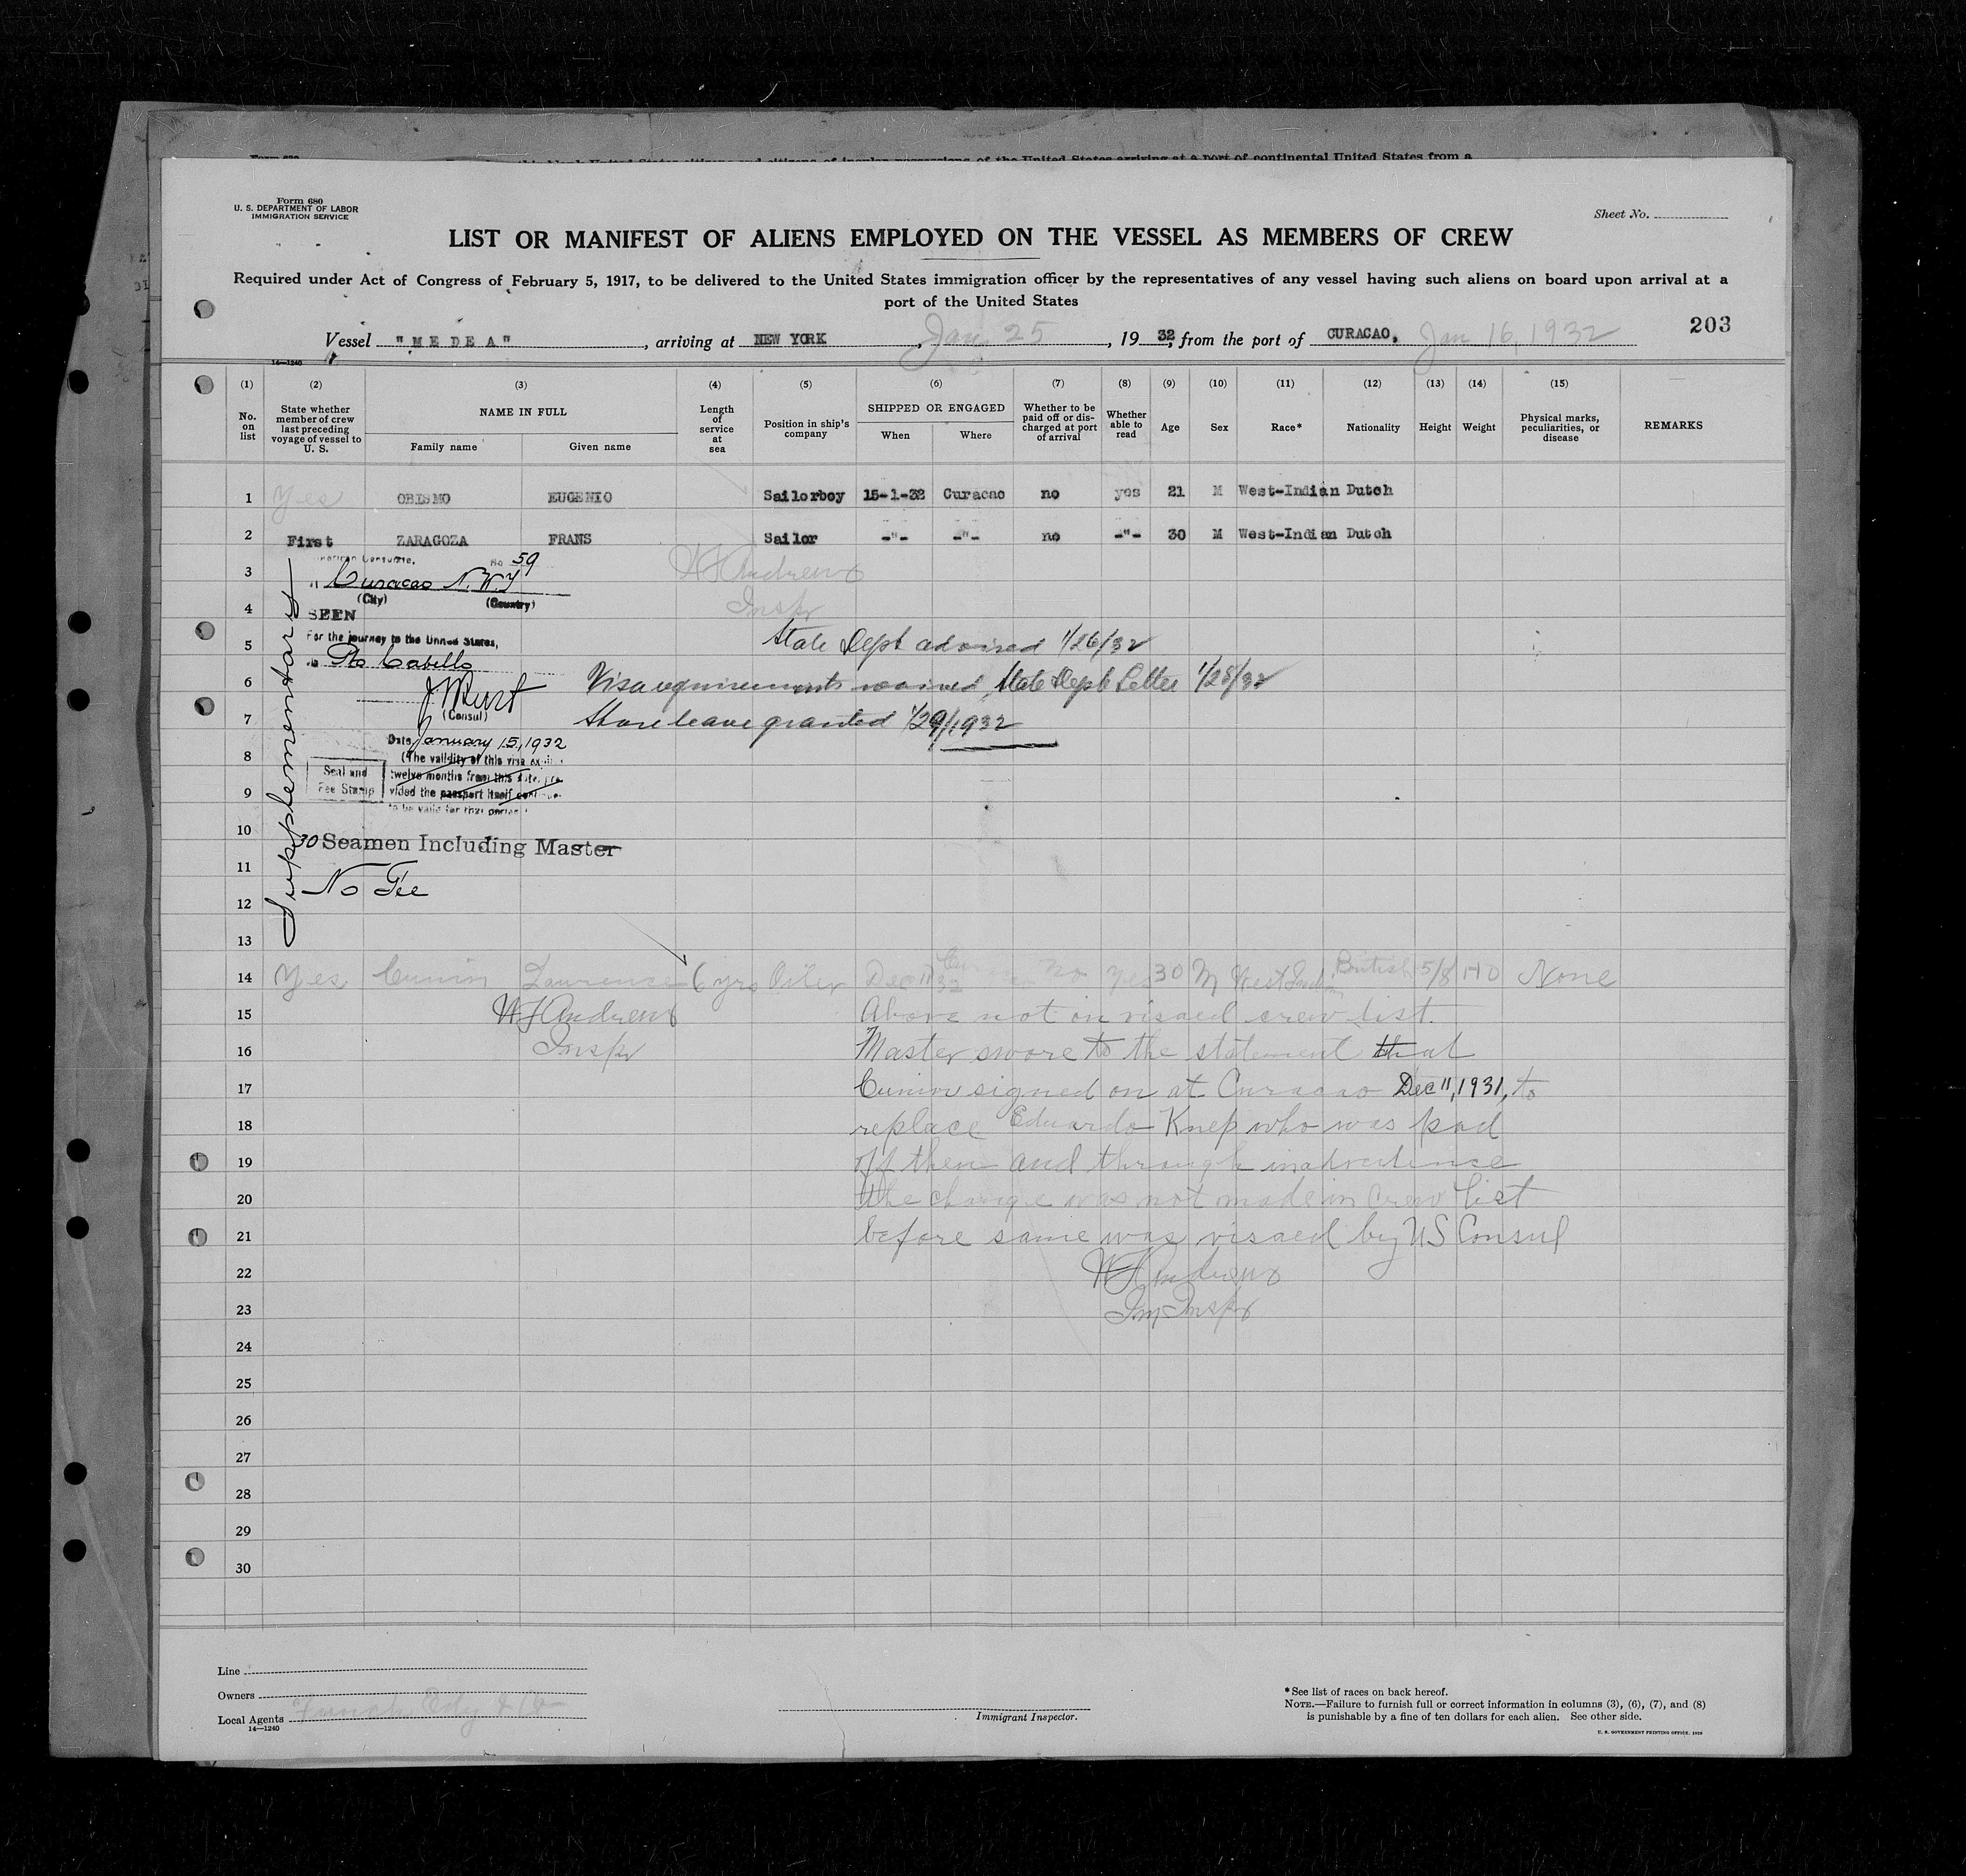 Form 680
U. S. DEPARTMENT OF LABOR
IMMIGRATION SERVICE
Sheet No.
LIST OR MANIFEST OF ALIENS EMPLOYED ON THE VESSEL AS MEMBERS OF CREW
Required under Act of Congress of February 5, 1917, to be delivered to the United States immigration officer by the representatives of any vessel having such aliens on board upon arrival at a
port of the United States
Vessel "MEDEA", arriving at NEW YORK, Jan 25, 1932, from the port of CURACAO, Jan 16, 1932
203
14—1240
(1) (2) (3) (4) (5) (6) (7) (8) (9) (10) (11) (12) (13) (14) (15)
No. on list
State whether member of crew last preceding voyage of vessel to U. S.
NAME IN FULL
Family name
Given name
Length of service at sea
Position in ship's company
SHIPPED OR ENGAGED
When
Where
Whether to be paid off or discharged at port of arrival
Whether able to read
Age
Sex
Race*
Nationality
Height
Weight
Physical marks, peculiarities, or disease
REMARKS
1 Yes OBISMO EUGENIO Sailorboy 15-1-32 Curacao no yes 21 M West-Indian Dutch
2 First ZARAGOZA FRANS Sailor -"- -"- no -"- 30 M West-Indian Dutch
Supplementary
American Consulate, No 59
3 Curacao N.W.I
(City) (Country)
W J Andrews
4 SEEN
Inspr
For the journey to the United States,
5 State Dept advised 1/26/32
Pto Cabello
6 Visa requirements waived, State Dept Letter 1/28/32
(Consul)
7 Shore leave granted 1/29/1932
Date January 15, 1932
8 (The validity of this visa expires
Seal and twelve months from this date, pro-
9 Fee Stamp vided the passport itself continues
to be valid for that period.)
10 30 Seamen Including Master
11
No Fee
12
13
14 Yes Cunin Lawrence 6 yrs Oiler Dec 11 32 Cur no yes 30 M West Indian British 5/8 140 None
15 W J Andrews Above not on visaed crew list.
16 Inspr Master swore to the statement that
17 Cunin signed on at Curacao Dec 11, 1931, to
18 replace Eduardo Knep who was paid
19 off then and through inadvertence
20 the change was not made in Crew list
21 before same was visaed by US Consul
22 W J Andrews
23 Im Inspr
24
25
26
27
28
29
30
Line
Owners
Local Agents Funch Edye & Co
14—1240
Immigrant Inspector.
*See list of races on back hereof.
NOTE.—Failure to furnish full or correct information in columns (3), (6), (7), and (8)
is punishable by a fine of ten dollars for each alien. See other side.
U. S. GOVERNMENT PRINTING OFFICE: 1929